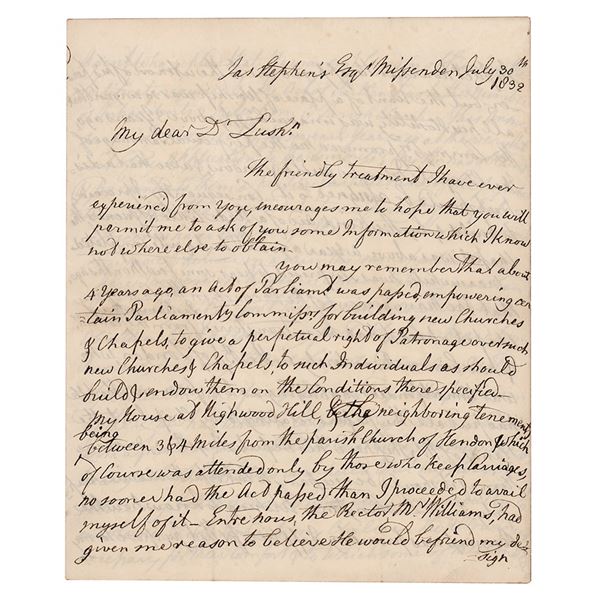 Jas Stephen's Esqr. Missenden July 30th
1832
My dear Dr. Lushn
The friendly treatment I have ever
experienced from You, encourages me to hope that you will
permit me to ask of you some Information which I know
not where else to obtain.
You may remember that about
4 Years ago, an Act of Parliamt. was passed, empowering cer
-tain Parliamenty Commissrs for building new Churches
& Chapels, to give a perpetual right of Patronage over such
new Churches & Chapels, to such Individuals as should
build & endow them on the Conditions there specified—
My House at Highwood Hill, & the neighboring tenements
being
between 3 & 4 Miles from the parish Church of Hendon & which
of Course was attended only by those who keep Carriages,
no sooner had the Act passed than I proceeded to avail
myself of it— Entre nous, the Rector Mr. Williams, had
given me reason to believe He would befriend my de-
-sign